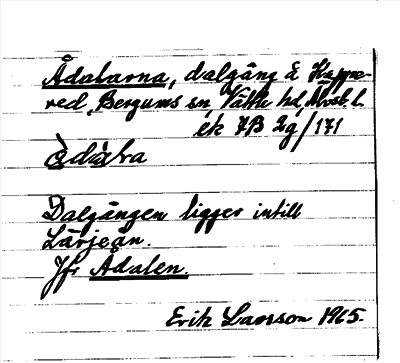 Ådalarna, dalgång å Kappe-
red, Bergums sn, Vättle hd, Älvsb. l.
ek 7B 2g/171
Dalgången ligger intill
Lärjeån.
Jfr Ådalen.
Erik Larsson 1965